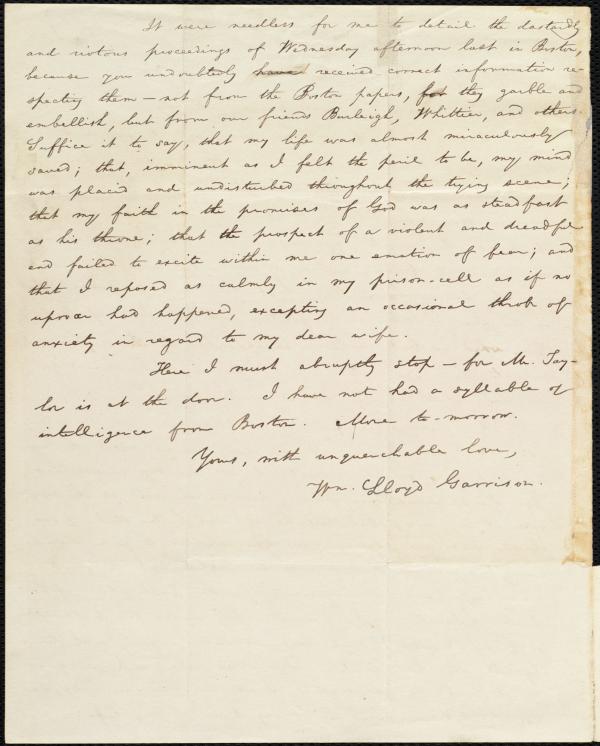 It were needless for me to detail the dastardly
and riotous proceedings of Wednesday afternoon last in Boston,
because you undoubtedly have received correct information re-
specting them — not from the Boston papers, for they garble and
embellish, but from our friends Burleigh, Whittier, and others.
Suffice it to say, that my life was almost miraculously
saved; that, imminent as I felt the peril to be, my mind
was placid and undisturbed throughout the trying scene;
that my faith in the promises of God was as steadfast
as his throne; that the prospect of a violent and dreadful
end failed to excite within me one emotion of fear; and
that I reposed as calmly in my prison-cell as if no
uproar had happened, excepting an occasional throb of
anxiety in regard to my dear wife.
Here I must abruptly stop — for Mr. Tay-
lor is at the door. I have not had a syllable of
intelligence from Boston. More to-morrow.
Yours, with unquenchable love,
Wm. Lloyd Garrison.